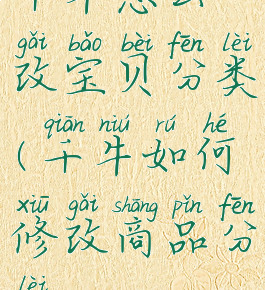 gǎi bǎo bèi fēn lèi
改宝贝分类
qiān niú rú hé
(千牛如何
xiū gǎi shāng pǐn fēn
修改商品分
lèi